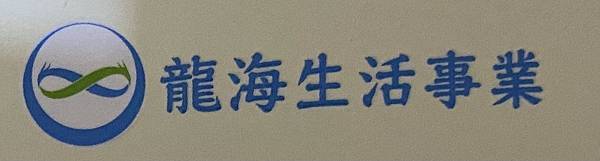 龍海生活事業